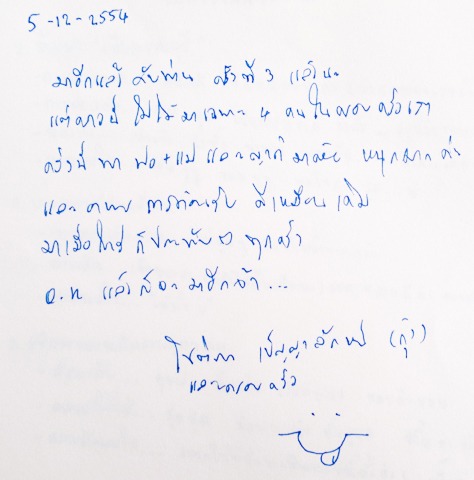 5-12-2554
มาอีกแล้ว กับท่าน ครั้งที่ 3 แล้วนะ
แต่คราวนี้ ไม่ได้มาเฉพาะ 4 คนในครอบครัวเรา
ครั้งนี้ พา พ่อ+แม่ และญาติ มาด้วย สนุกมากค่ะ
และ การต้อนรับ ดีเหมือนเดิม
มาเมื่อไหร่ ก็ประทับใจ ทุกครั้ง
ป.ท แล้วก็จะมาอีกจ้า...
(กุ๊ง)
และครอบครัว